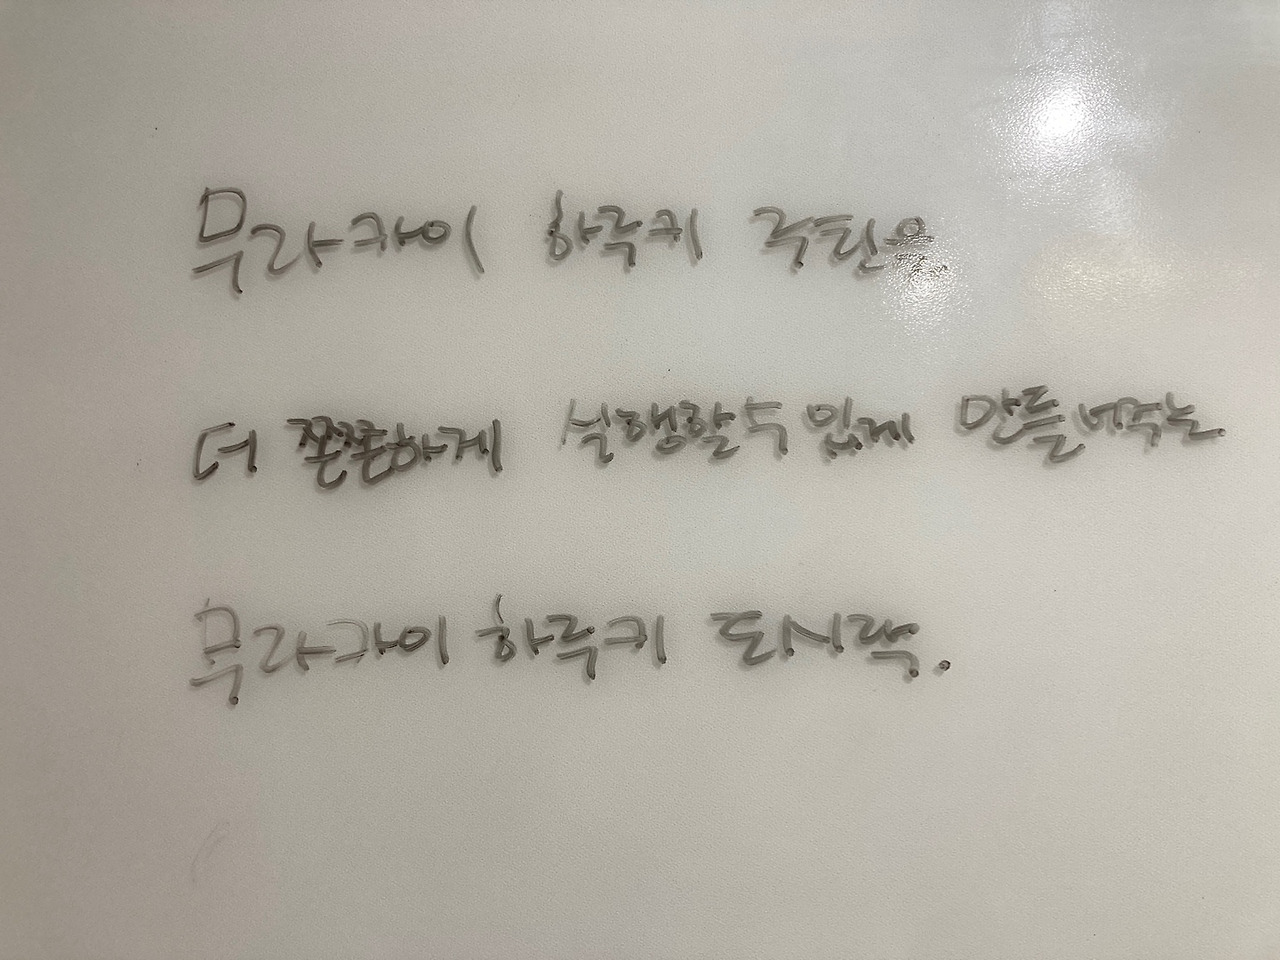 무라카이 하루키 루틴을
더 쫀쫀하게 실행할수 있게 만들어주는
무라카이 하루키 도시락.